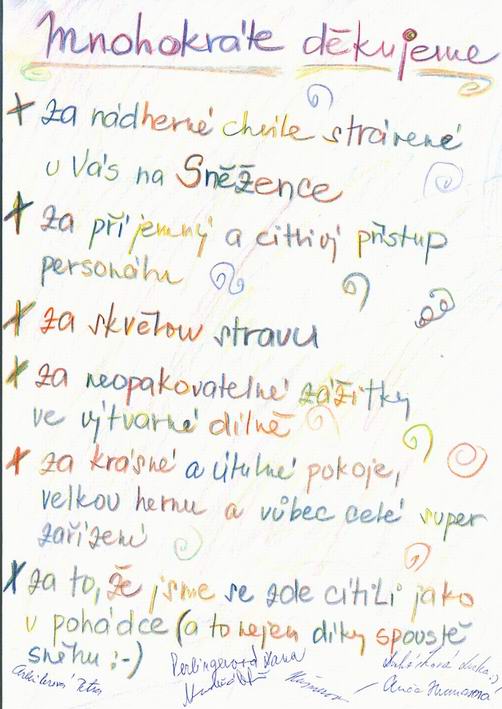 Mnohokráte děkujeme
+ za nádherné chvíle strávené
u Vás na Sněžence
+ za příjemný a citlivý přístup
personálu
+ za skvělou stravu
+ za neopakovatelné zážitky
ve výtvarné dílně
+ za krásné a útulné pokoje,
velkou hernu a vůbec celé super
zařízení
+ za to, že jsme se zde cítili jako
v pohádce (a to nejen díky spoustě
sněhu :-)
Perlingerová Hana
Petra